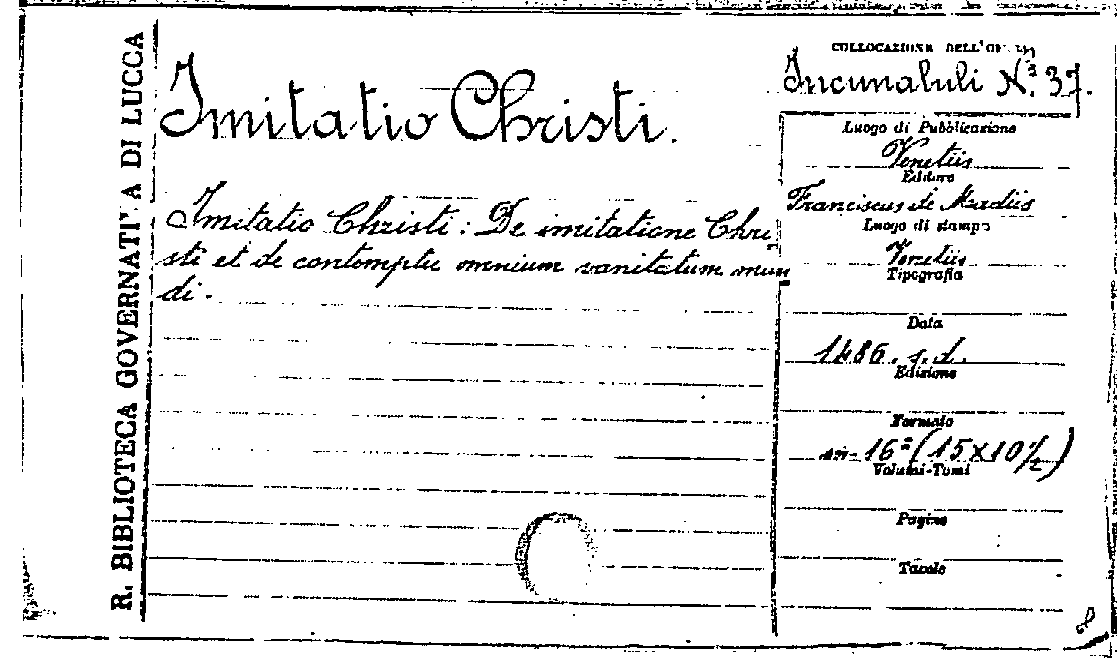 R. BIBLIOTECA GOVERNATIVA DI LUCCA
Imitatio Christi.
Imitatio Christi: De imitatione Chri
sti et de contemptu omnium vanitatum mun
di.
COLLOCAZIONE DELL'OPERA
Incunabuli N.° 37.
Luogo di Pubblicazione
Venetiis
Editore
Franciscus de Madiis
Luogo di stampa
Venetiis
Tipografia
Data
1486. s.d.
Edizione
Formato
in-16° (15x10½)
Volumi-Tomi
Pagine
Tavole